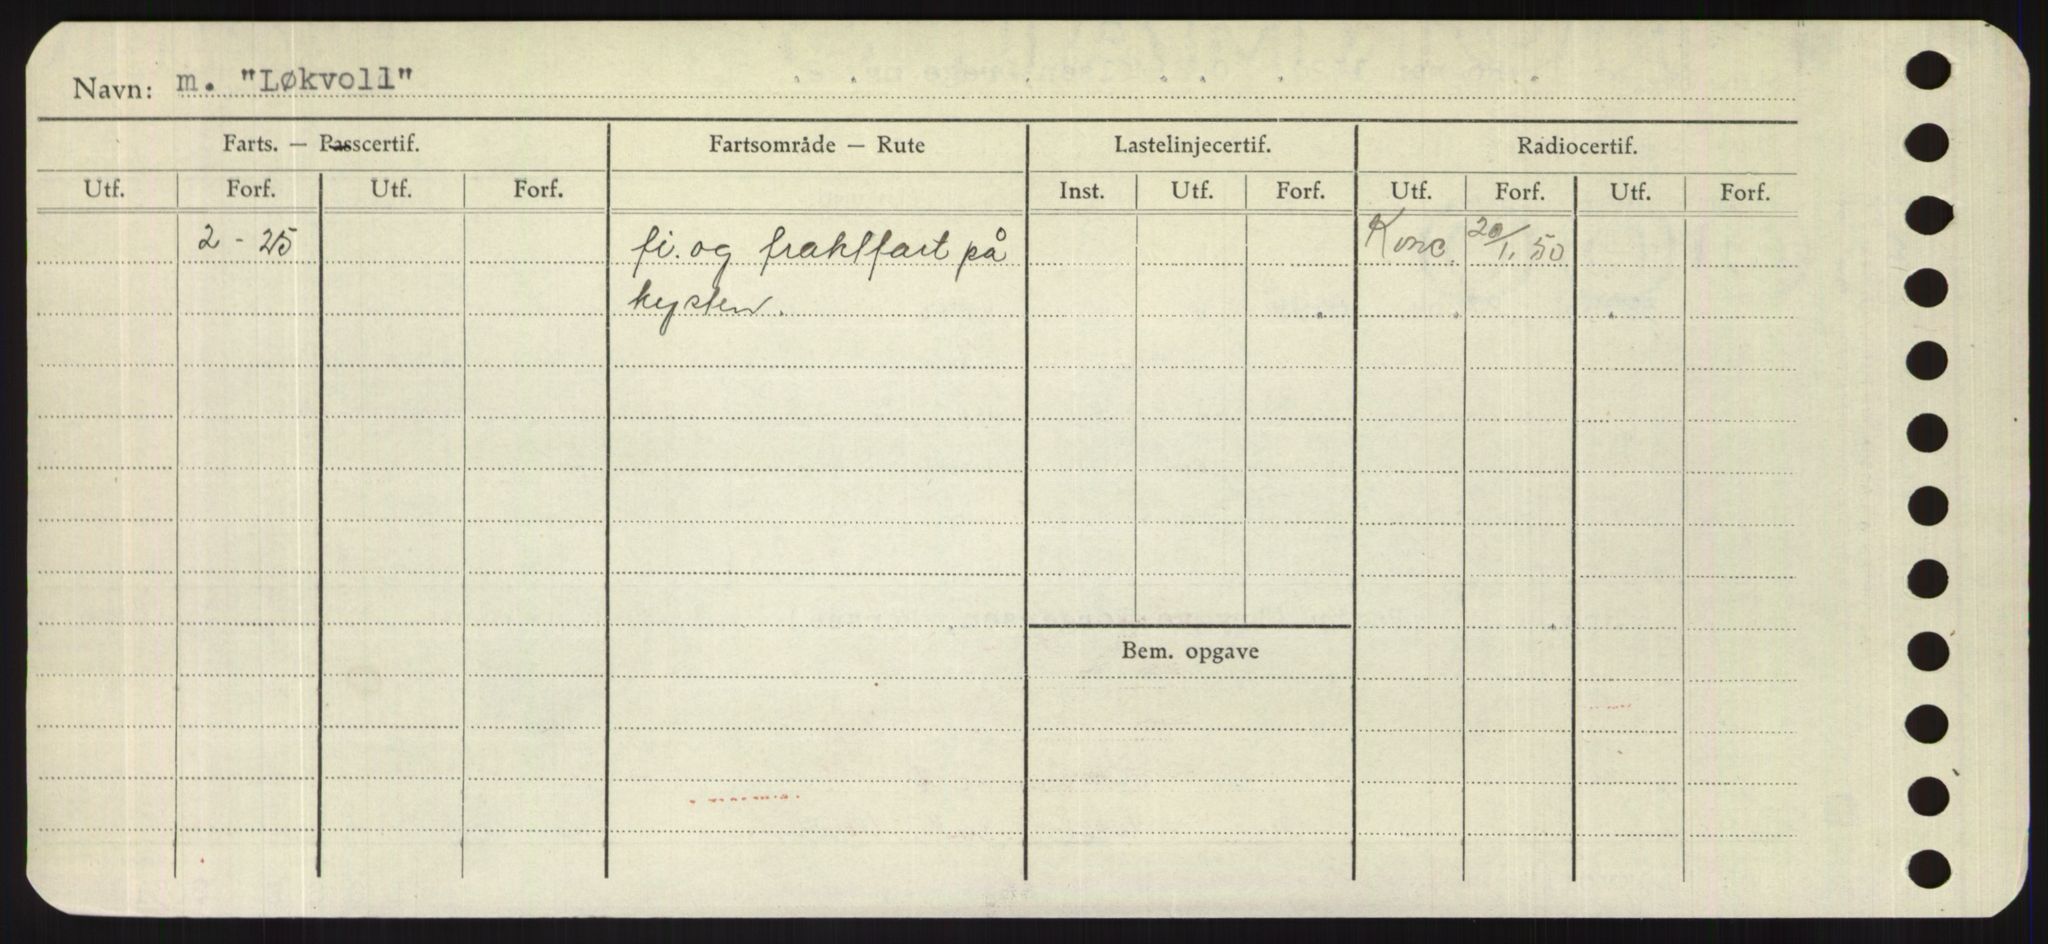 Navn: m. "Løkvoll"
Farts. — Passcertif. Fartsområde — Rute Lastelinjecertif. Radiocertif.
Utf. Forf. Utf. Forf. Inst. Utf. Forf. Utf. Forf. Utf. Forf.
2 - 25 fi. og fraktfart på Konc. 20/1. 50
kysten.
Bem. opgave